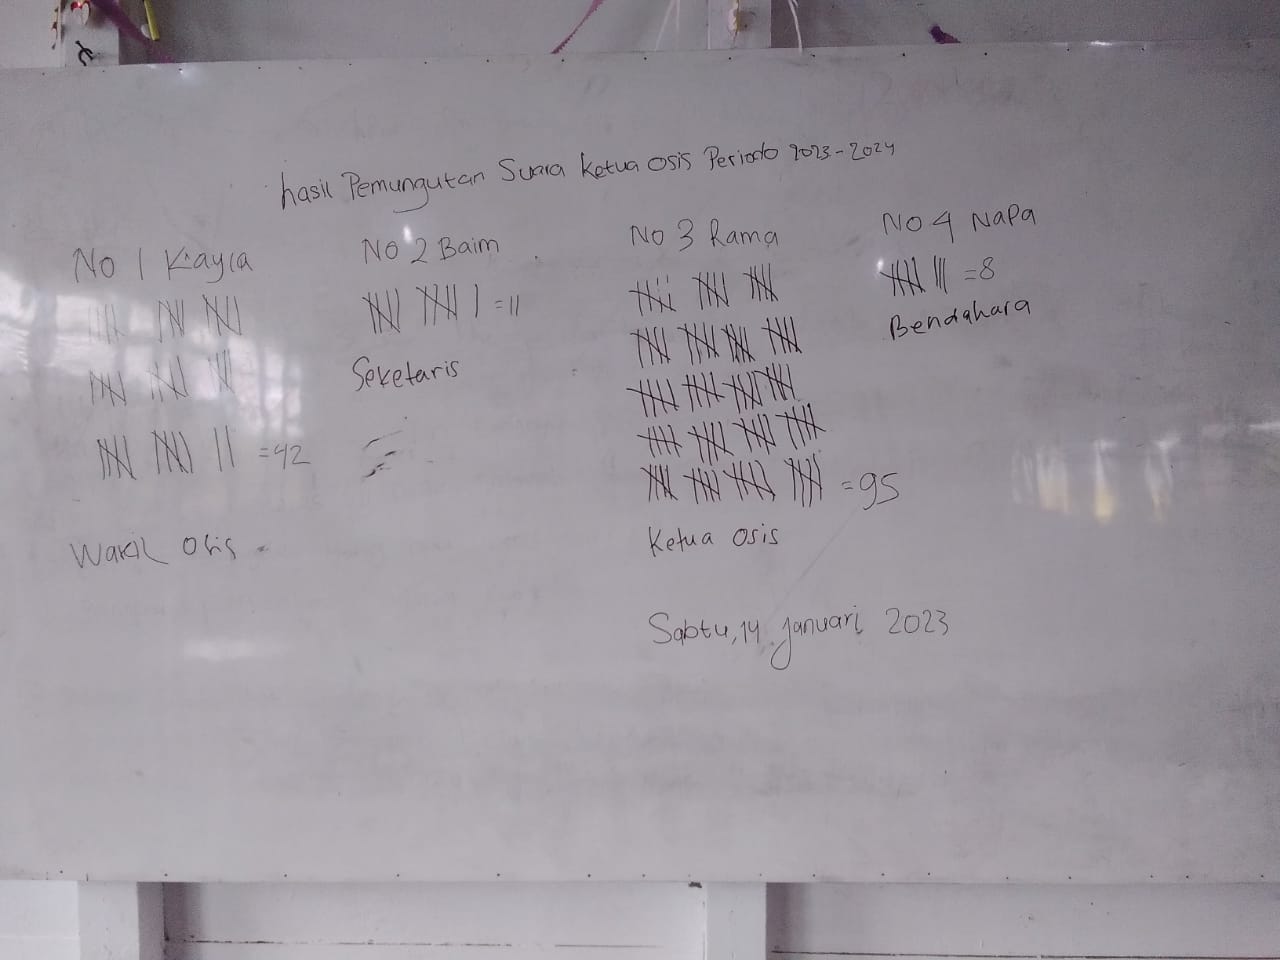 hasil Pemungutan Suara Ketua Osis Periode 2023-2024
No 1 Kayla
= 42
Wakil Osis
No 2 Baim
= 11
Seketaris
No 3 Rama
= 95
Ketua Osis
No 4 Napa
= 8
Bendahara
Sabtu, 14 Januari 2023